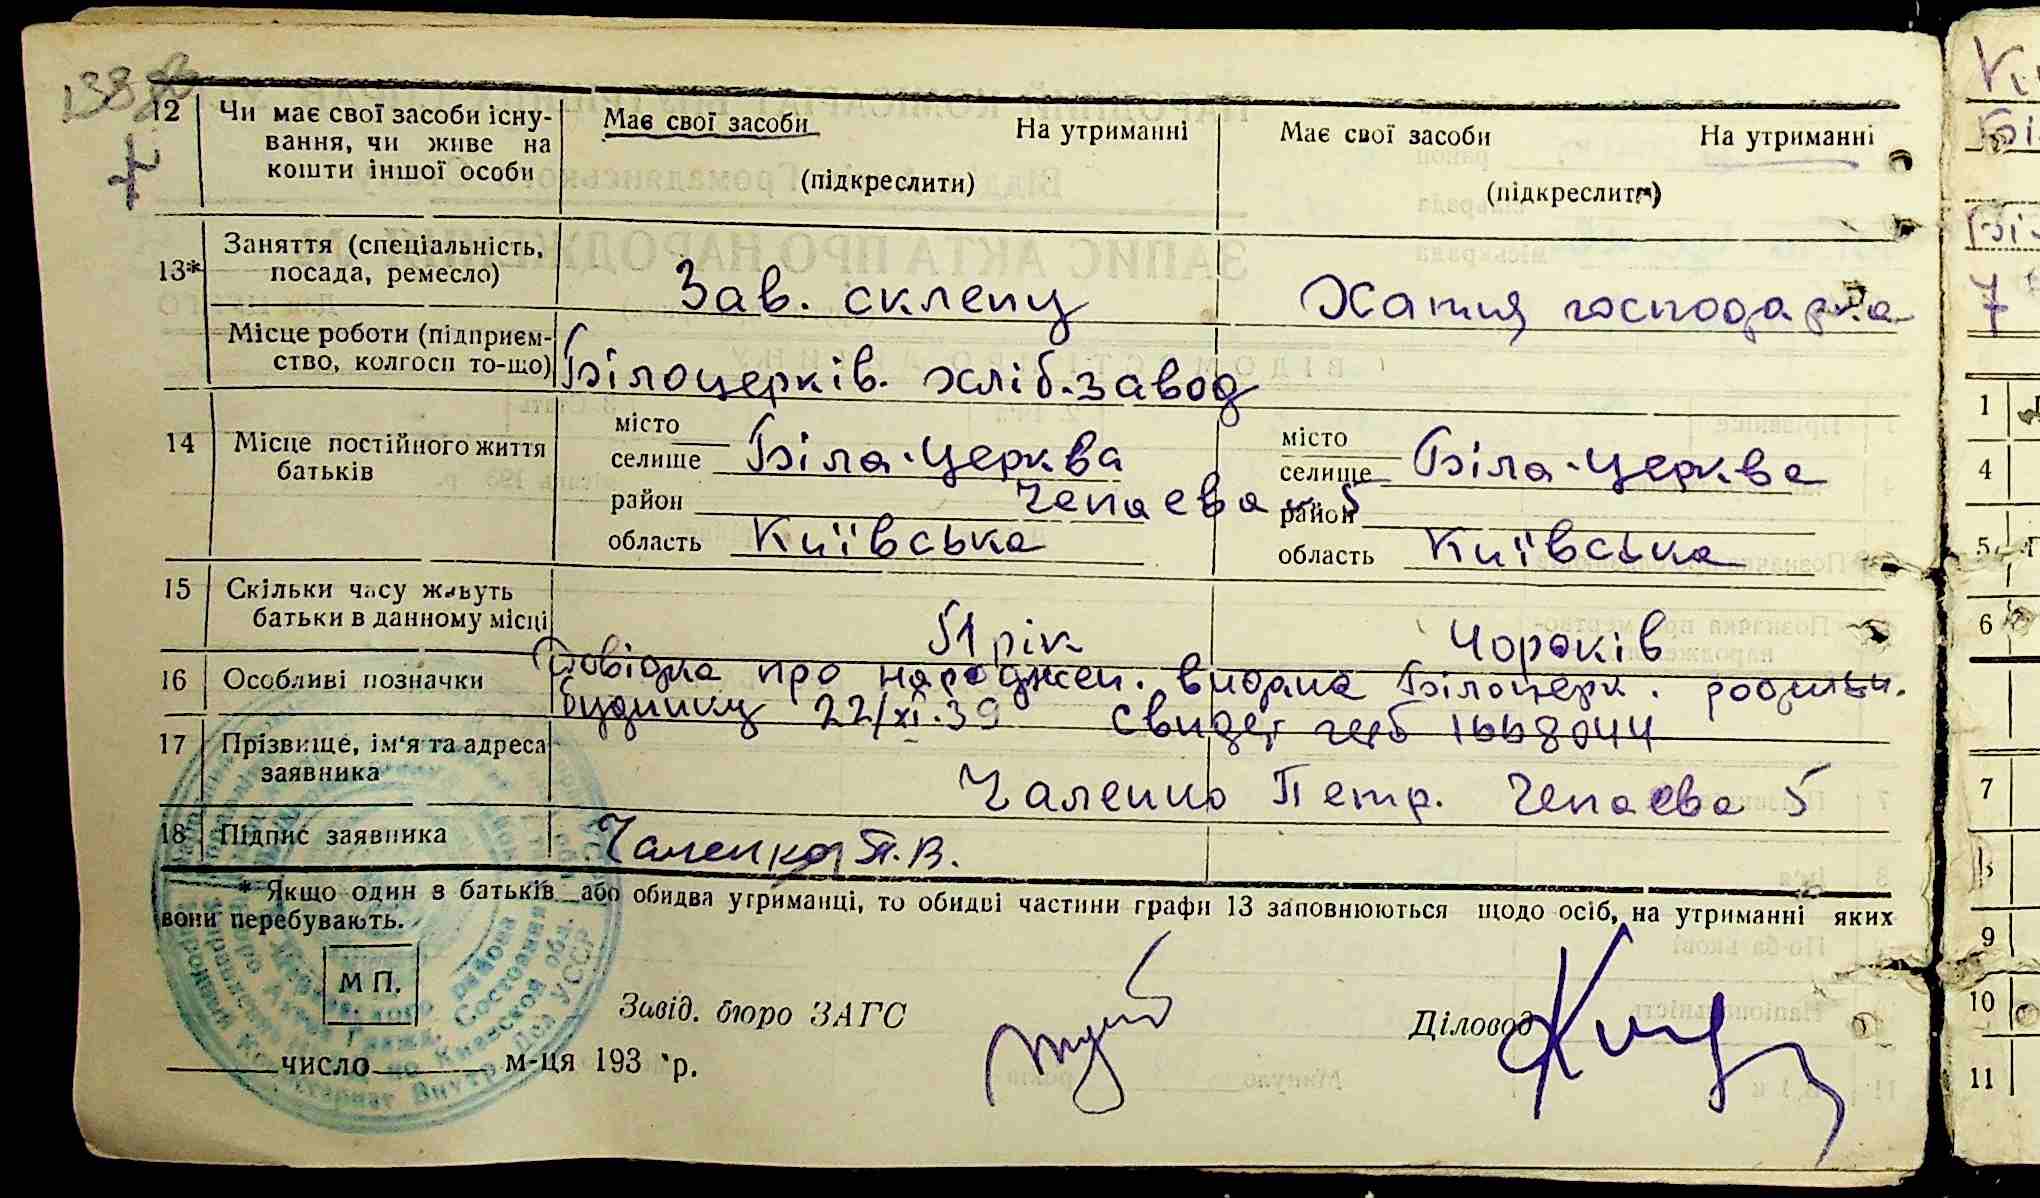 138
12 Чи має свої засоби існу-
вання, чи живе на
кошти іншої особи
Має свої засоби На утриманні
(підкреслити)
Має свої засоби На утриманні
(підкреслити)
13* Заняття (спеціальність,
посада, ремесло)
Зав. склепу
Хатня господарка
Місце роботи (підприєм-
ство, колгосп то-що)
Білоцерків. хліб.завод
14 Місце постійного життя
батьків
місто
селище Біла-Церква
район Чепаева 5
область Київська
місто
селище Біла-Церква
район
область Київська
15 Скільки часу живуть
батьки в данному місці
51 рік
4 років
16 Особливі позначки
Довідка про народжен. видана Білоцерк. родильн.
будинку 22/XI.39 свидет герб 1668044
17 Прізвище, ім'я та адреса
заявника
Чаленко Петр. Чепаева 5
18 Підпис заявника
Чаленко П.В.
* Якщо один з батьків або обидва утриманці, то обидві частини графи 13 заповнюються щодо осіб, на утриманні яких
вони перебувають.
М П.
Завід. бюро ЗАГС
Діловод
число м-ця 193 р.
1
4
5
6
7
9
10
11